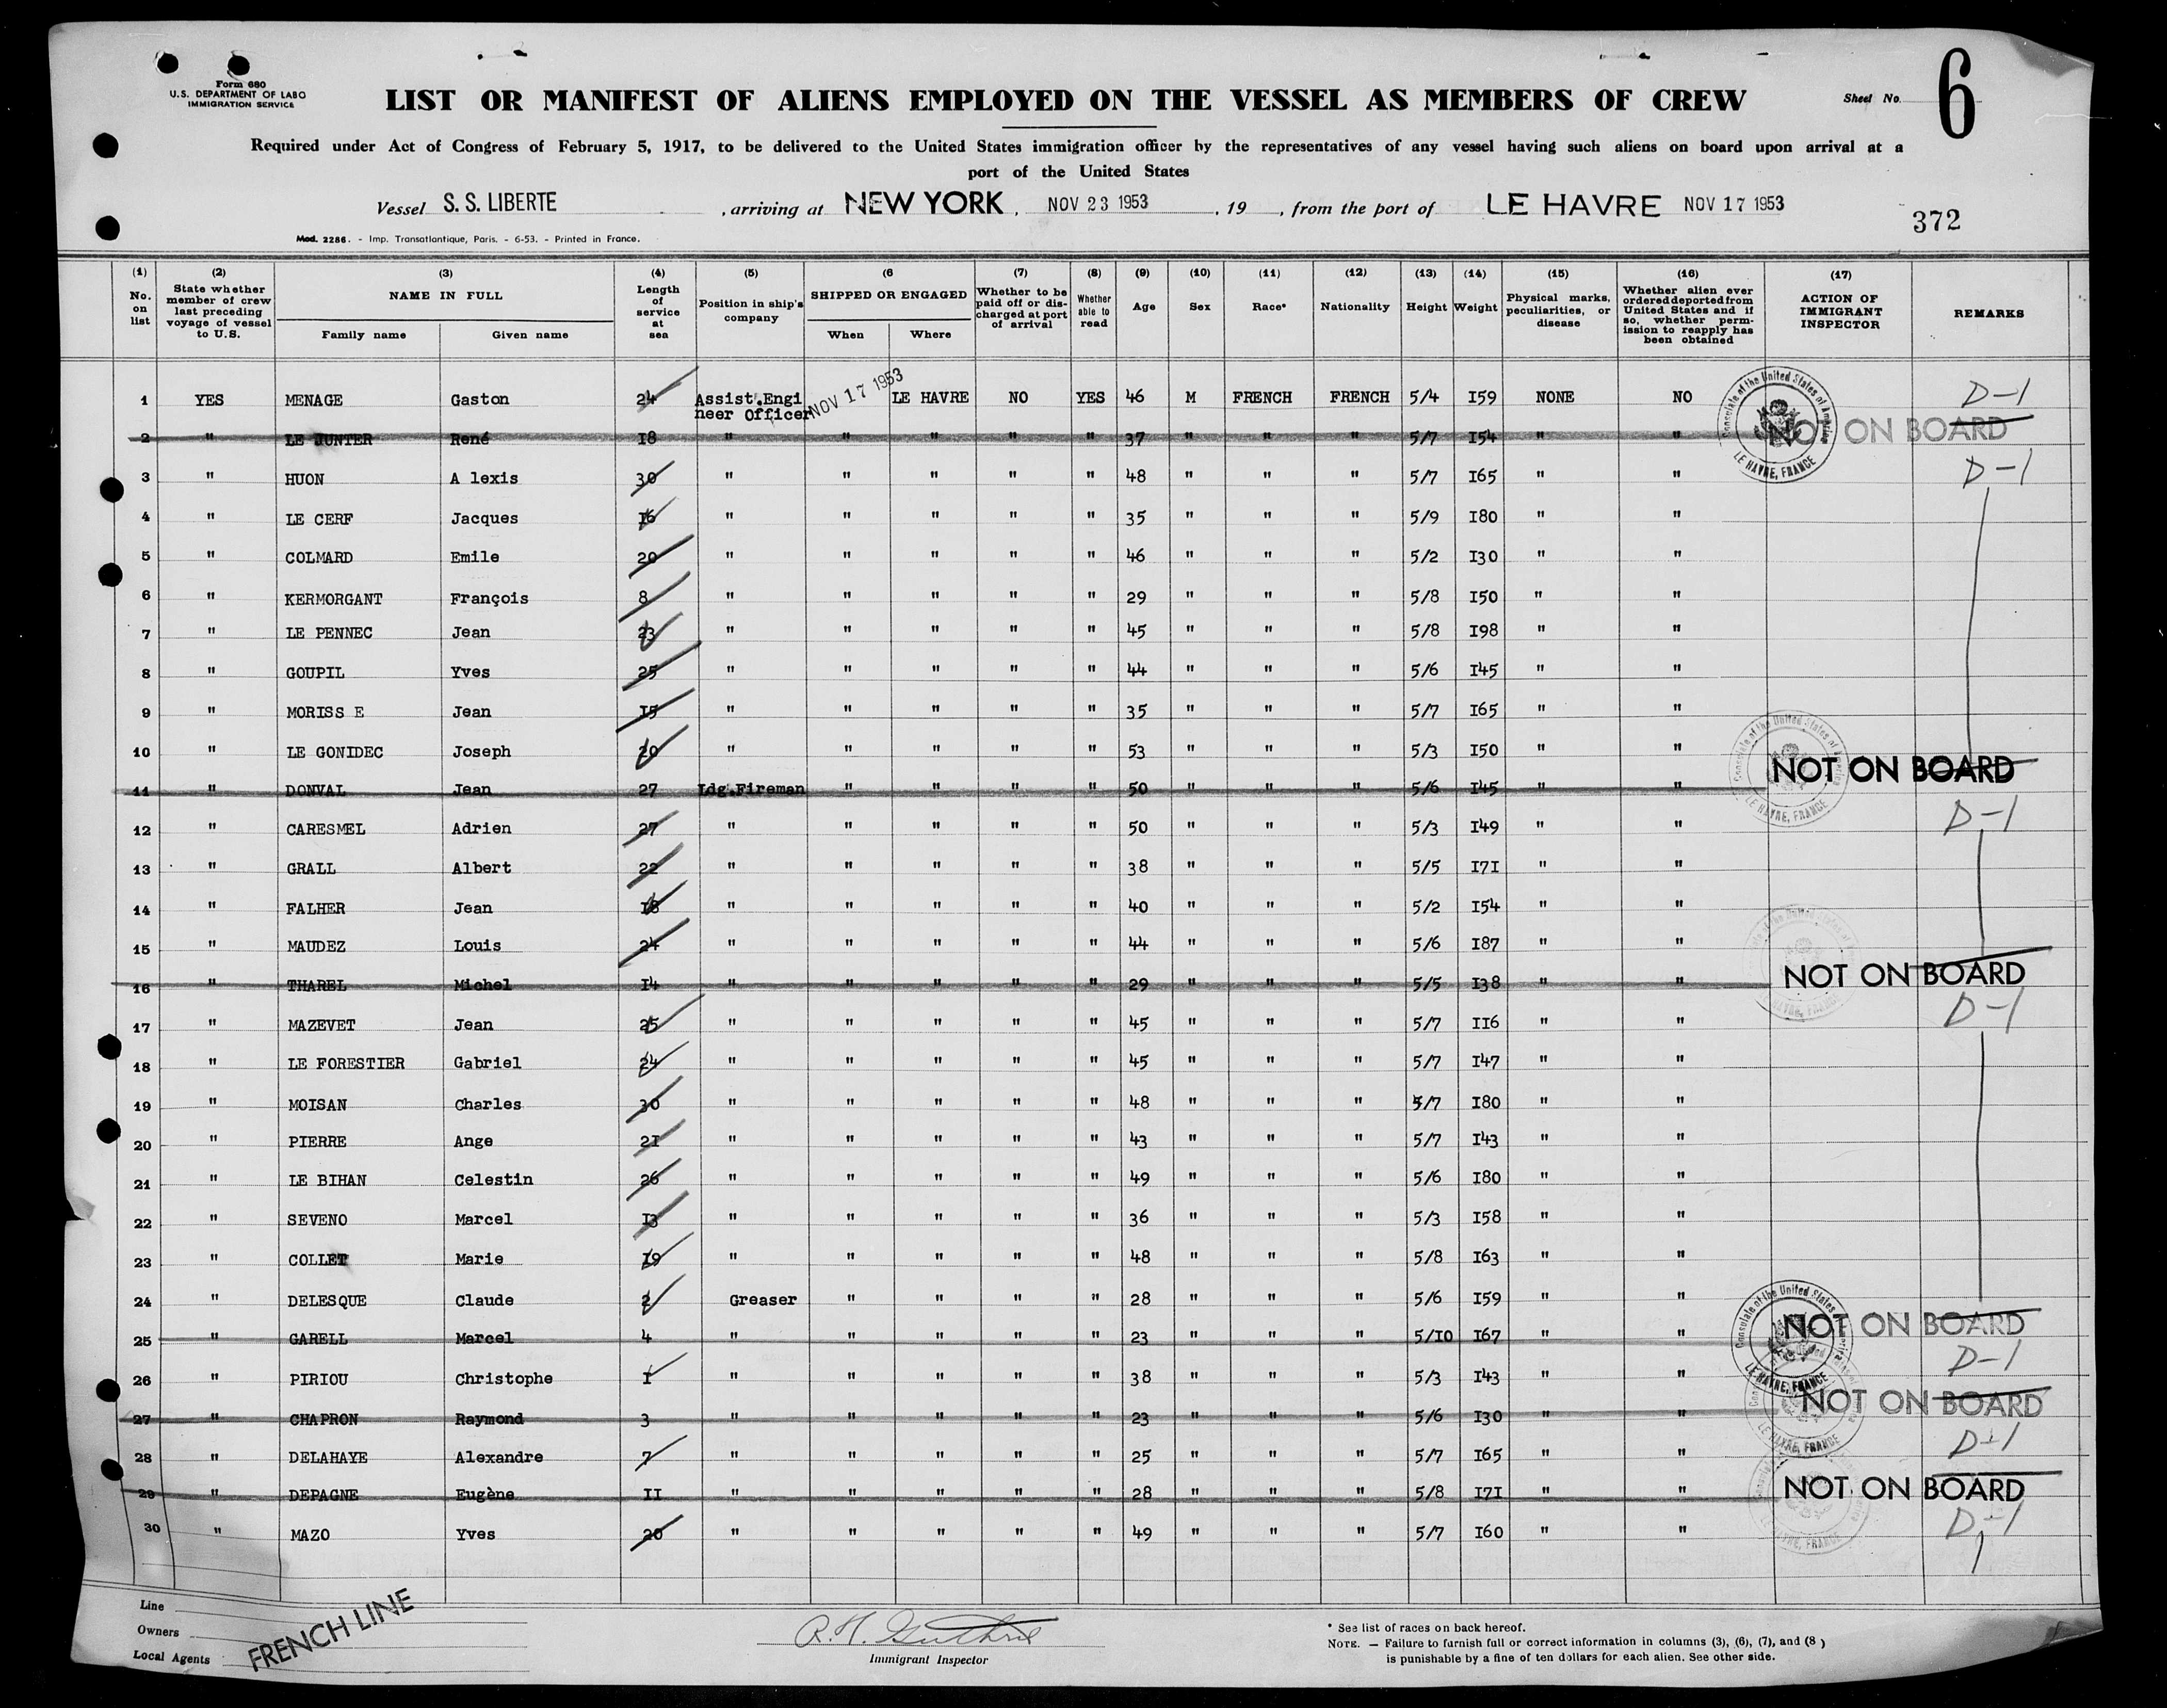 Form 680
U.S. DEPARTMENT OF LABO
IMMIGRATION SERVICE
LIST OR MANIFEST OF ALIENS EMPLOYED ON THE VESSEL AS MEMBERS OF CREW
Sheet No. 6
Required under Act of Congress of February 5, 1917, to be delivered to the United States immigration officer by the representatives of any vessel having such aliens on board upon arrival at a
port of the United States
Vessel S. S. LIBERTE, arriving at NEW YORK, NOV 23 1953, 19 , from the port of LE HAVRE NOV 17 1953
372
Mod. 2286. - Imp. Transatlantique, Paris. - 6-53. - Printed in France.
(1) No. on list (2) State whether member of crew last preceding voyage of vessel to U.S. (3) NAME IN FULL Family name Given name (4) Length of service at sea (5) Position in ship's company (6 SHIPPED OR ENGAGED When Where (7) Whether to be paid off or discharged at port of arrival (8) Whether able to read (9) Age (10) Sex (11) Race* (12) Nationality (13) Height (14) Weight (15) Physical marks, peculiarities, or disease (16) Whether alien ever ordered deported from United States and if so, whether permission to reapply has been obtained (17) ACTION OF IMMIGRANT INSPECTOR REMARKS
1 YES MENAGE Gaston 24 Assist.Engi neer Officer NOV 17 1953 LE HAVRE NO YES 46 M FRENCH FRENCH 5/4 I59 NONE NO D-1
2 " LE JUNTER René I8 " " " " " 37 " " " 5/7 I54 " " NOT ON BOARD
3 " HUON A lexis 30 " " " " " 48 " " " 5/7 I65 " " D-1
4 " LE CERF Jacques I6 " " " " " 35 " " " 5/9 I80 " "
5 " COLMARD Emile 20 " " " " " 46 " " " 5/2 I30 " "
6 " KERMORGANT François 8 " " " " " 29 " " " 5/8 I50 " "
7 " LE PENNEC Jean 23 " " " " " 45 " " " 5/8 I98 " "
8 " GOUPIL Yves 25 " " " " " 44 " " " 5/6 I45 " "
9 " MORISS E Jean I5 " " " " " 35 " " " 5/7 I65 " "
10 " LE GONIDEC Joseph 20 " " " " " 53 " " " 5/3 I50 " "
11 " DONVAL Jean 27 Ldg.Fireman " " " " 50 " " " 5/6 I45 " " NOT ON BOARD
12 " CARESMEL Adrien 27 " " " " " 50 " " " 5/3 I49 " " D-1
13 " GRALL Albert 22 " " " " " 38 " " " 5/5 I7I " "
14 " FALHER Jean I8 " " " " " 40 " " " 5/2 I54 " "
15 " MAUDEZ Louis 24 " " " " " 44 " " " 5/6 I87 " "
16 " THAREL Michel I4 " " " " " 29 " " " 5/5 I38 " " NOT ON BOARD
17 " MAZEVET Jean 25 " " " " " 45 " " " 5/7 II6 " " D-1
18 " LE FORESTIER Gabriel 24 " " " " " 45 " " " 5/7 I47 " "
19 " MOISAN Charles 30 " " " " " 48 " " " 5/7 I80 " "
20 " PIERRE Ange 2I " " " " " 43 " " " 5/7 I43 " "
21 " LE BIHAN Celestin 26 " " " " " 49 " " " 5/6 I80 " "
22 " SEVENO Marcel I3 " " " " " 36 " " " 5/3 I58 " "
23 " COLLET Marie I9 " " " " " 48 " " " 5/8 I63 " "
24 " DELESQUE Claude 2 Greaser " " " " 28 " " " 5/6 I59 " "
25 " GARELL Marcel 4 " " " " " 23 " " " 5/I0 I67 " " NOT ON BOARD
26 " PIRIOU Christophe I " " " " " 38 " " " 5/3 I43 " " D-1
27 " CHAPRON Raymond 3 " " " " " 23 " " " 5/6 I30 " " NOT ON BOARD
28 " DELAHAYE Alexandre 7 " " " " " 25 " " " 5/7 I65 " " D-1
29 " DEPAGNE Eugène II " " " " " 28 " " " 5/8 I7I " " NOT ON BOARD
30 " MAZO Yves 20 " " " " " 49 " " " 5/7 I60 " " D-1
Consulate of the United States of America
LE HAVRE, FRANCE
Line
Owners
Local Agents
FRENCH LINE
R. H. Guthrie
Immigrant Inspector
* See list of races on back hereof.
NOTE. — Failure to furnish full or correct information in columns (3), (6), (7), and (8 )
is punishable by a fine of ten dollars for each alien. See other side.